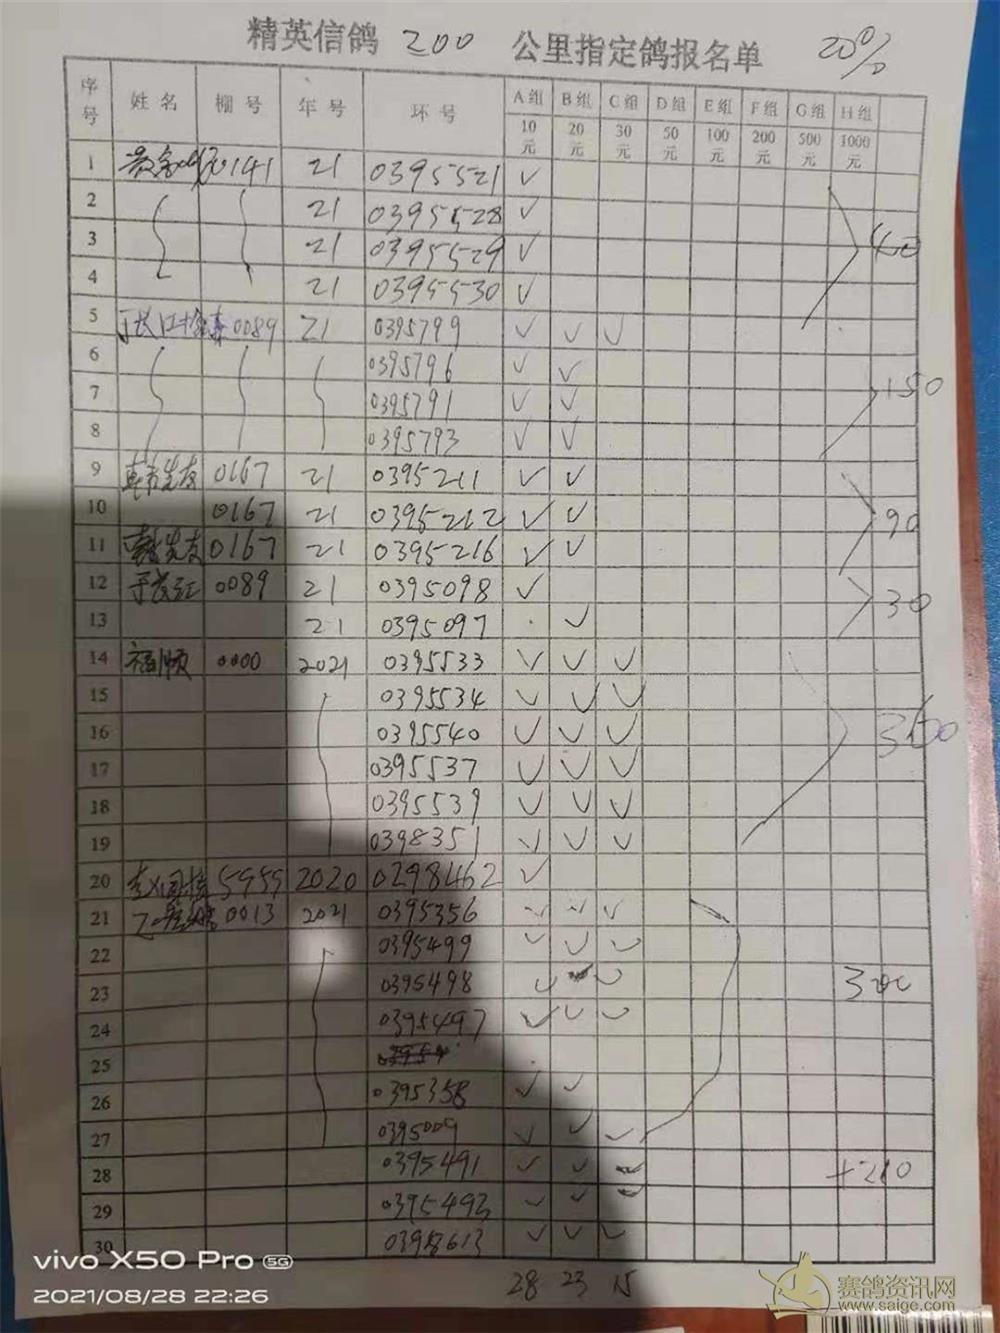 精英信鸽 200 公里指定鸽报名单 20%
序号 姓名 棚号 年号 环号 A组 B组 C组 D组 E组 F组 G组 H组
10元 20元 30元 50元 100元 200元 500元 1000元
1 0141 21 0395521 ✓
2 21 0395528 ✓
3 21 0395529 ✓ 40
4 21 0395530 ✓
5 0089 21 0395799 ✓ ✓ ✓
6 0395796 ✓ ✓
7 0395791 ✓ ✓ 150
8 0395793 ✓ ✓
9 0167 21 0395211 ✓ ✓
10 0167 21 0395212 ✓ ✓ 90
11 0167 21 0395216 ✓ ✓
12 于长江 0089 21 0395098 ✓ 30
13 21 0395097 ✓
14 福顺 0000 2021 0395533 ✓ ✓ ✓
15 0395534 ✓ ✓ ✓
16 0395540 ✓ ✓ ✓ 360
17 0395537 ✓ ✓ ✓
18 0395539 ✓ ✓ ✓
19 0398351 ✓ ✓ ✓
20 5959 2020 0298462 ✓
21 0013 2021 0395356 ✓ ✓ ✓
22 0395499 ✓ ✓ ✓
23 0395498 ✓ ✓ 300
24 0395497 ✓ ✓ ✓
25
26 0395358 ✓ ✓
27 0395009 ✓ ✓ ✓
28 0395491 ✓ ✓ +210
29 0395493 ✓ ✓
30 ✓ ✓ ✓
28 23 15
vivo X50 Pro 5G
2021/08/28 22:26
赛鸽资讯网
www.saige.com